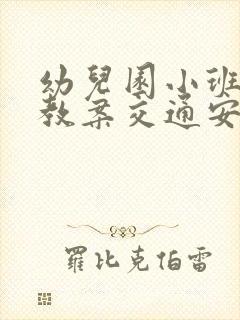 幼兒園小班
教案交通安
羅比克伯雷